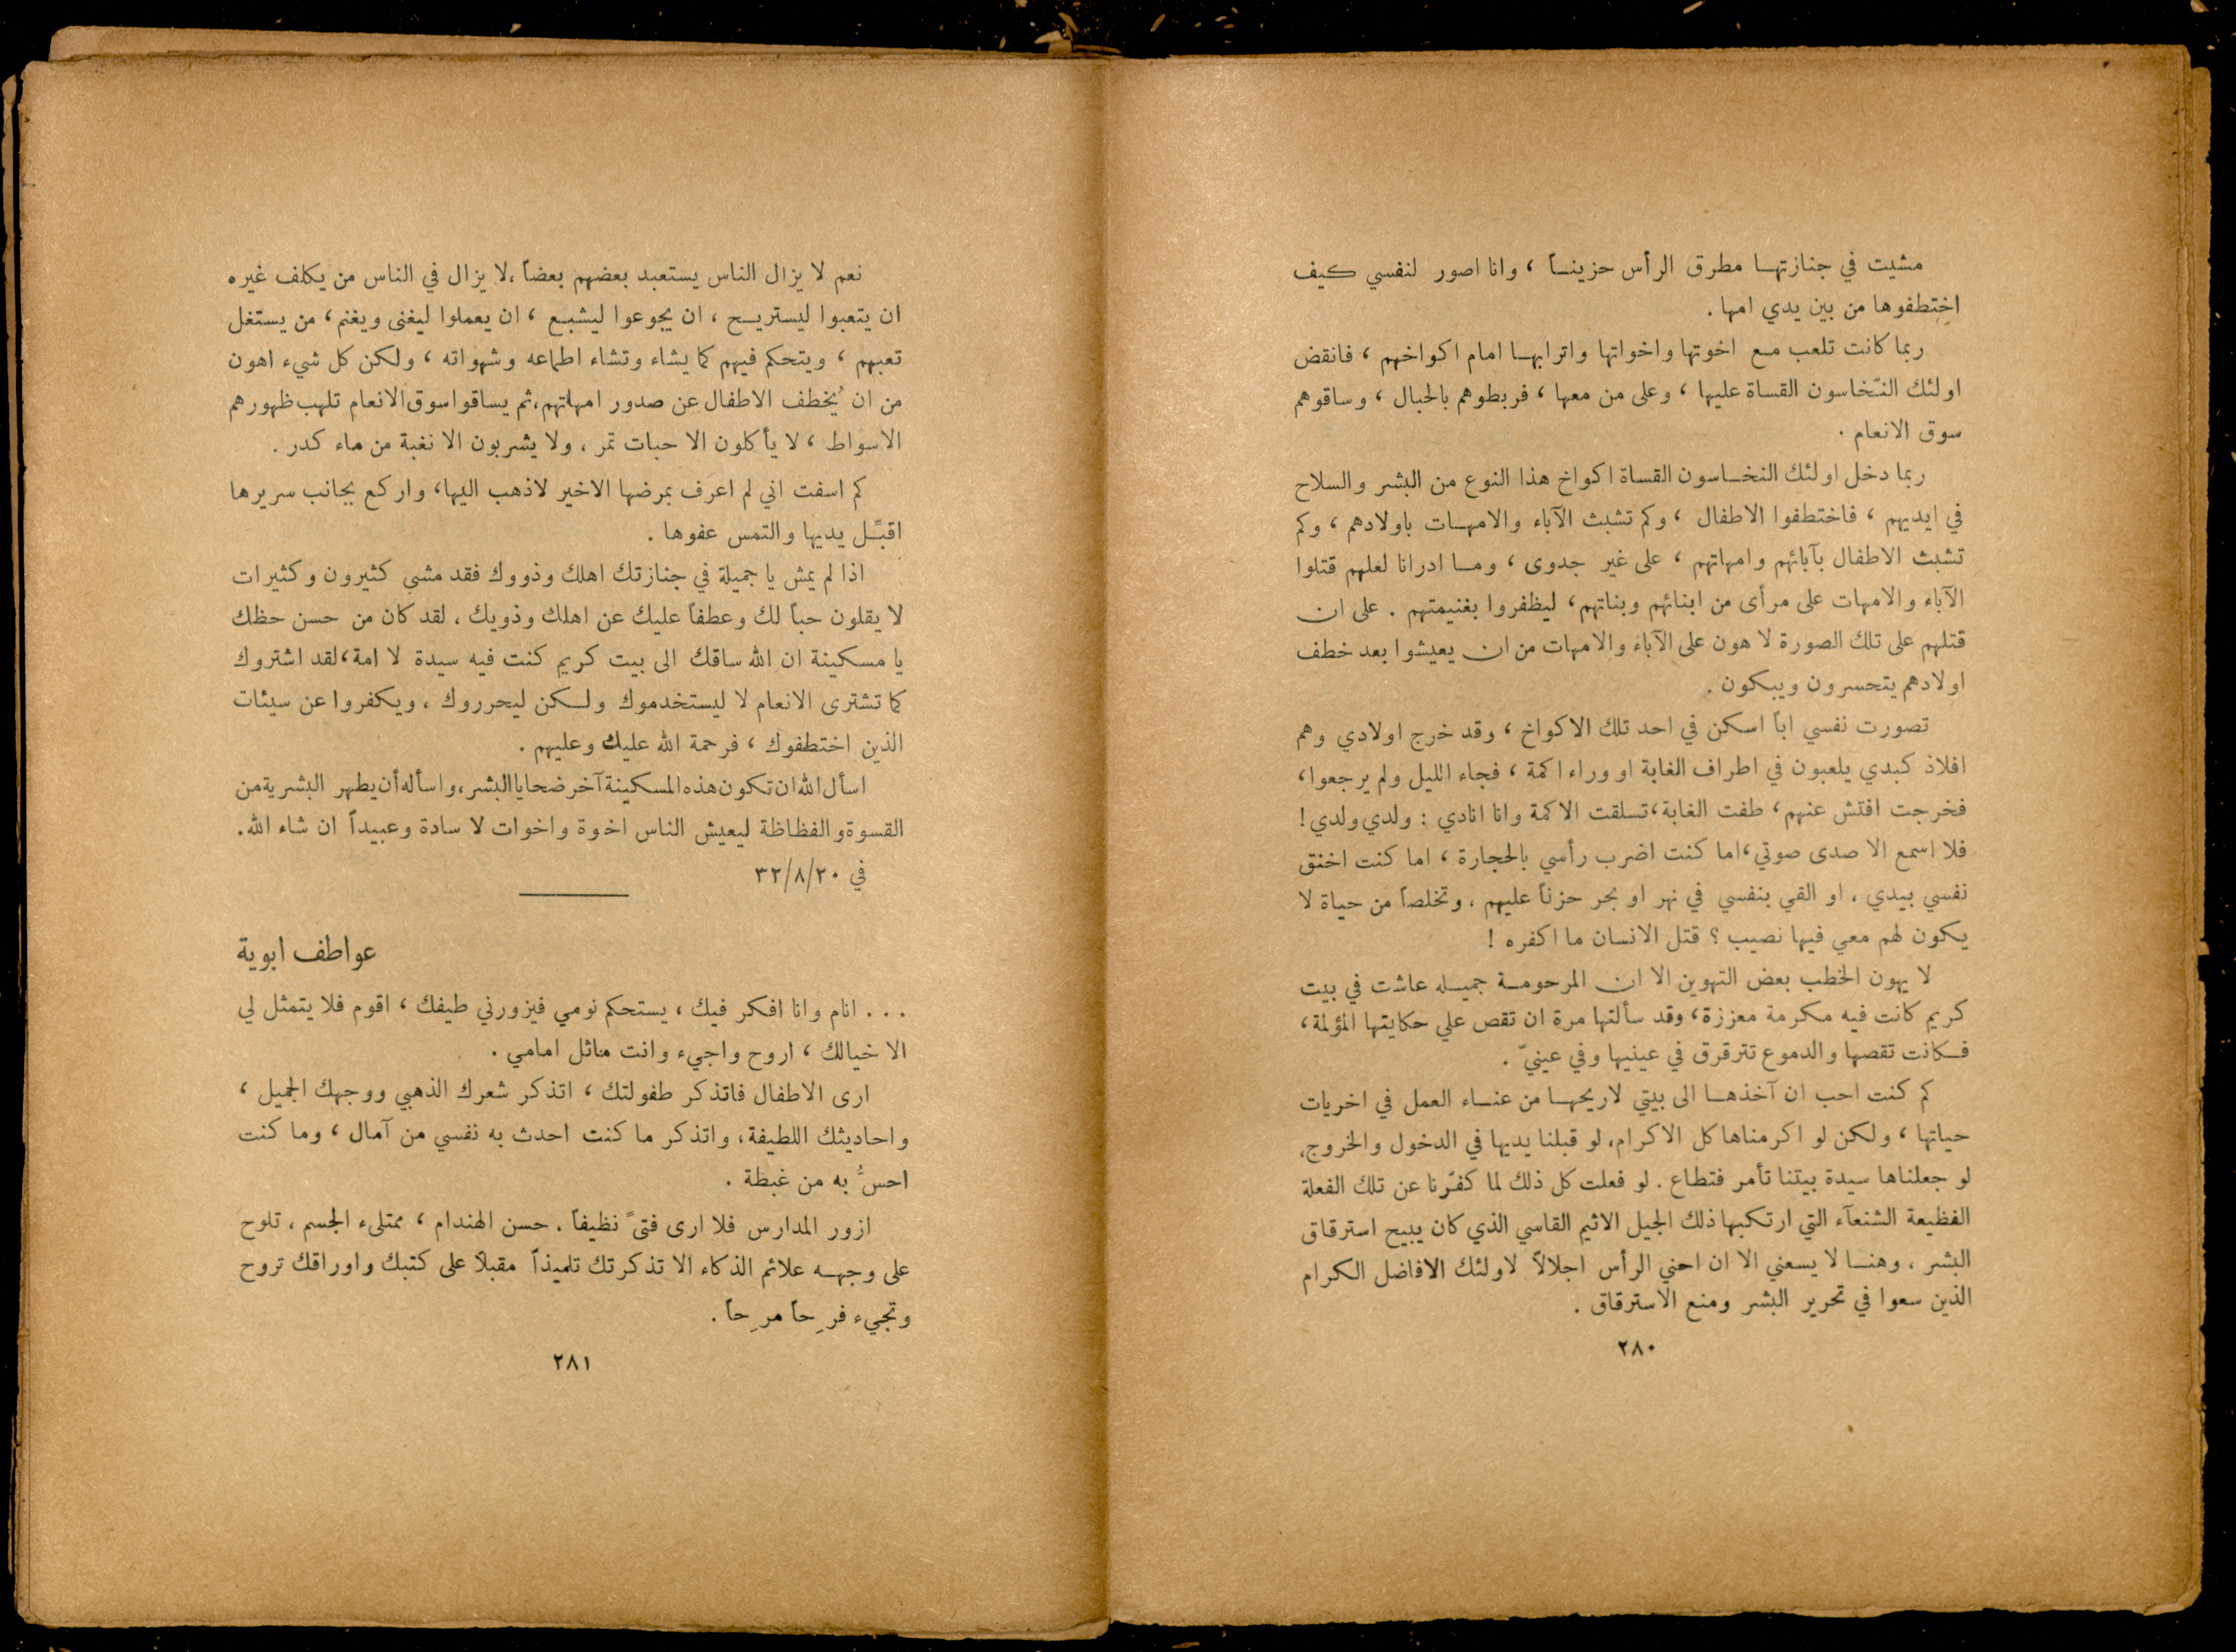 مشيت في جنازتهـا مطرق الرأس حزينـاً ، وانا اصور لنفسي كيف
اختطفوها من بين يدي امها .
ربما كانت تلعب مـع اخوتها واخواتها واترابهـا امام اكواخهم ، فانقض
اولئك النخّاسون القساة عليها ، وعلى من معها ، فربطوهم بالحبال ، وساقوهم
سوق الانعام .
ربما دخل اولئك النخـاسون القساة اكواخ هذا النوع من البشر والسلاح
في ايديهم ، فاختطفوا الاطفال ، وكم تشبث الآباء والامهـات باولادهم ، وكم
تشبث الاطفال بآبائهم وامهاتهم ، على غير جدوى ، ومـا ادرانا لعلهم قتلوا
الآباء والامهات على مرأى من ابنائهم وبناتهم ، ليظفروا بغنيمتهم . على ان
قتلهم على تلك الصورة لا هون على الآباء والامهات من ان يعيشوا بعد خطف
اولادهم يتحسرون ويبكون .
تصورت نفسي اباً اسكن في احد تلك الاكواخ ، وقد خرج اولادي وهم
افلاذ كبدي يلعبون في اطراف الغابة او وراء اكمة ، فجاء الليل ولم يرجعوا ،
فخرجت افتش عنهم ، طفت الغابة ، تسلقت الاكمة وانا انادي : ولدي ولدي !
فلا اسمع الا صدى صوتي ، اما كنت اضرب رأسي بالحجارة ، اما كنت اخنق
نفسي بيدي ، او القي بنفسي في نهر او بحر حزناً عليهم ، وتخلصاً من حياة لا
يكون لهم معي فيها نصيب ؟ قتل الانسان ما اكفره !
لا يهون الخطب بعض التهوين الا ان المرحومـة جميـله عاشت في بيت
كريم كانت فيه مكرمة معززة ، وقد سألتها مرة ان تقص علي حكايتها المؤلمة ،
فـكانت تقصها والدموع تترقرق في عينيها وفي عينيّ .
كم كنت احب ان آخذهـا الى بيتي لاريحهـا من عنـاء العمل في اخريات
حياتها ، ولكن لو اكرمناها كل الاكرام ، لو قبلنا يديها في الدخول والخروج ،
لو جعلناها سيدة بيتنا تأمر فتطاع . لو فعلت كل ذلك لما كفّرنا عن تلك الفعلة
الفظيعة الشنعآء التي ارتكبها ذلك الجيل الاثيم القاسي الذي كان يبيح استرقاق
البشر ، وهنـا لا يسعني الا ان احني الرأس اجلالاً لاولئك الافاضل الكرام
الذين سعوا في تحرير البشر ومنع الاسترقاق .
٢٨٠
نعم لا يزال الناس يستعبد بعضهم بعضاً ، لا يزال في الناس من يكلف غيره
ان يتعبوا ليستريـح ، ان يجوعوا ليشبـع ، ان يعملوا ليغنى ويغنم ، من يستغل
تعبهم ، ويتحكم فيهم كما يشاء وتشاء اطماعه وشهواته ، ولكن كل شيء اهون
من ان يُخطف الاطفال عن صدور امهاتهم ، ثم يساقوا سوق الانعام تلهب ظهورهم
الاسواط ، لا يأكلون الا حبات تمر ، ولا يشربون الا نغبة من ماء كدر .
كم اسفت اني لم اعرف بمرضها الاخير لاذهب اليها ، واركع بجانب سريرها
اقبّـل يديها والتمس عفوها .
اذا لم يمش يا جميلة في جنازتك اهلك وذووك فقد مشى كثيرون وكثيرات
لا يقلون حباً لك وعطفاً عليك عن اهلك وذويك ، لقد كان من حسن حظك
يا مسكينة ان الله ساقك الى بيت كريم كنت فيه سيدة لا امة ، لقد اشتروك
كما تشترى الانعام لا ليستخدموك ولـكن ليحرروك ، ويكفروا عن سيئات
الذين اختطفوك ، فرحمة الله عليك وعليهم .
اسأل الله ان تكون هذه المسكينة آخر ضحايا البشر ، واسأله أن يطهر البشرية من
القسوة والفظاظة ليعيش الناس اخوة واخوات لا سادة وعبيداً ان شاء الله .
في ٣٢/٨/٢٠
عواطف ابوية
. . . انام وانا افكر فيك ، يستحكم نومي فيزورني طيفك ، اقوم فلا يتمثل لي
الا خيالك ، اروح واجيء وانت ماثل امامي .
ارى الاطفال فاتذكر طفولتك ، اتذكر شعرك الذهبي ووجهك الجميل ،
واحاديثك اللطيفة ، واتذكر ما كنت احدث به نفسي من آمال ، وما كنت
احسُّ به من غبطة .
ازور المدارس فلا ارى فتىً نظيفاً . حسن الهندام ، ممتلىء الجسم ، تلوح
على وجهـه علائم الذكاء الا تذكرتك تلميذاً مقبلاً على كتبك واوراقك تروح
وتجيء فرِحاً مرِحاً .
٢٨١